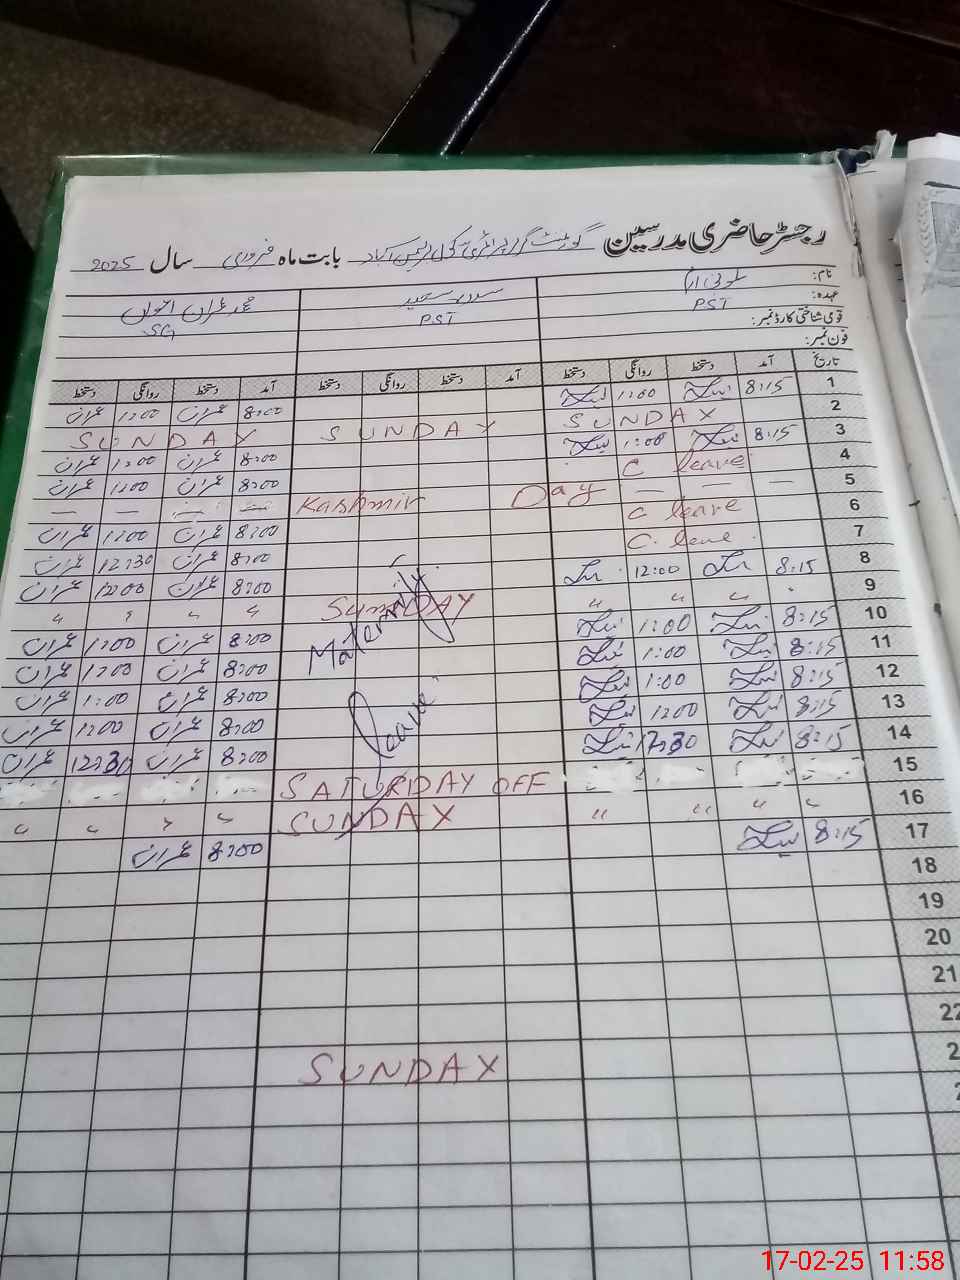 رجسٹر حاضری مدرسین گورنمنٹ گرلز پرائمری سکول بابت ماہ فروری سال 2025
نام:
عہدہ: PST PST SG
قومی شناختی کارڈ نمبر:
فون نمبر:
تاریخ آمد دستخط روانگی دستخط آمد دستخط روانگی دستخط آمد دستخط روانگی دستخط
1 8:15 1:00 8:00 عمران 1:00 عمران
2 SUNDAY SUNDAY SUNDAY
3 8:15 1:00 8:00 عمران 1:00 عمران
4 C leave 8:00 عمران 1:00 عمران
5 — — — Kashmir Day — —
6 C leave 8:00 عمران 1:00 عمران
7 C. leave 8:00 عمران 12:30 عمران
8 8:15 12:00 8:00 عمران 12:00 عمران
9 " " " SUNDAY " " " "
10 8:15 1:00 Maternity 8:00 عمران 1:00 عمران
11 8:15 1:00 8:00 عمران 1:00 عمران
12 8:15 1:00 leave 8:00 عمران 1:00 عمران
13 8:15 1:00 8:00 عمران 1:00 عمران
14 8:15 12:30 8:00 عمران 12:30 عمران
15 SATURDAY OFF
16 " " " " SUNDAY " " " "
17 8:15 8:00 عمران
18
19
20
21
22
SUNDAY
17-02-25 11:58